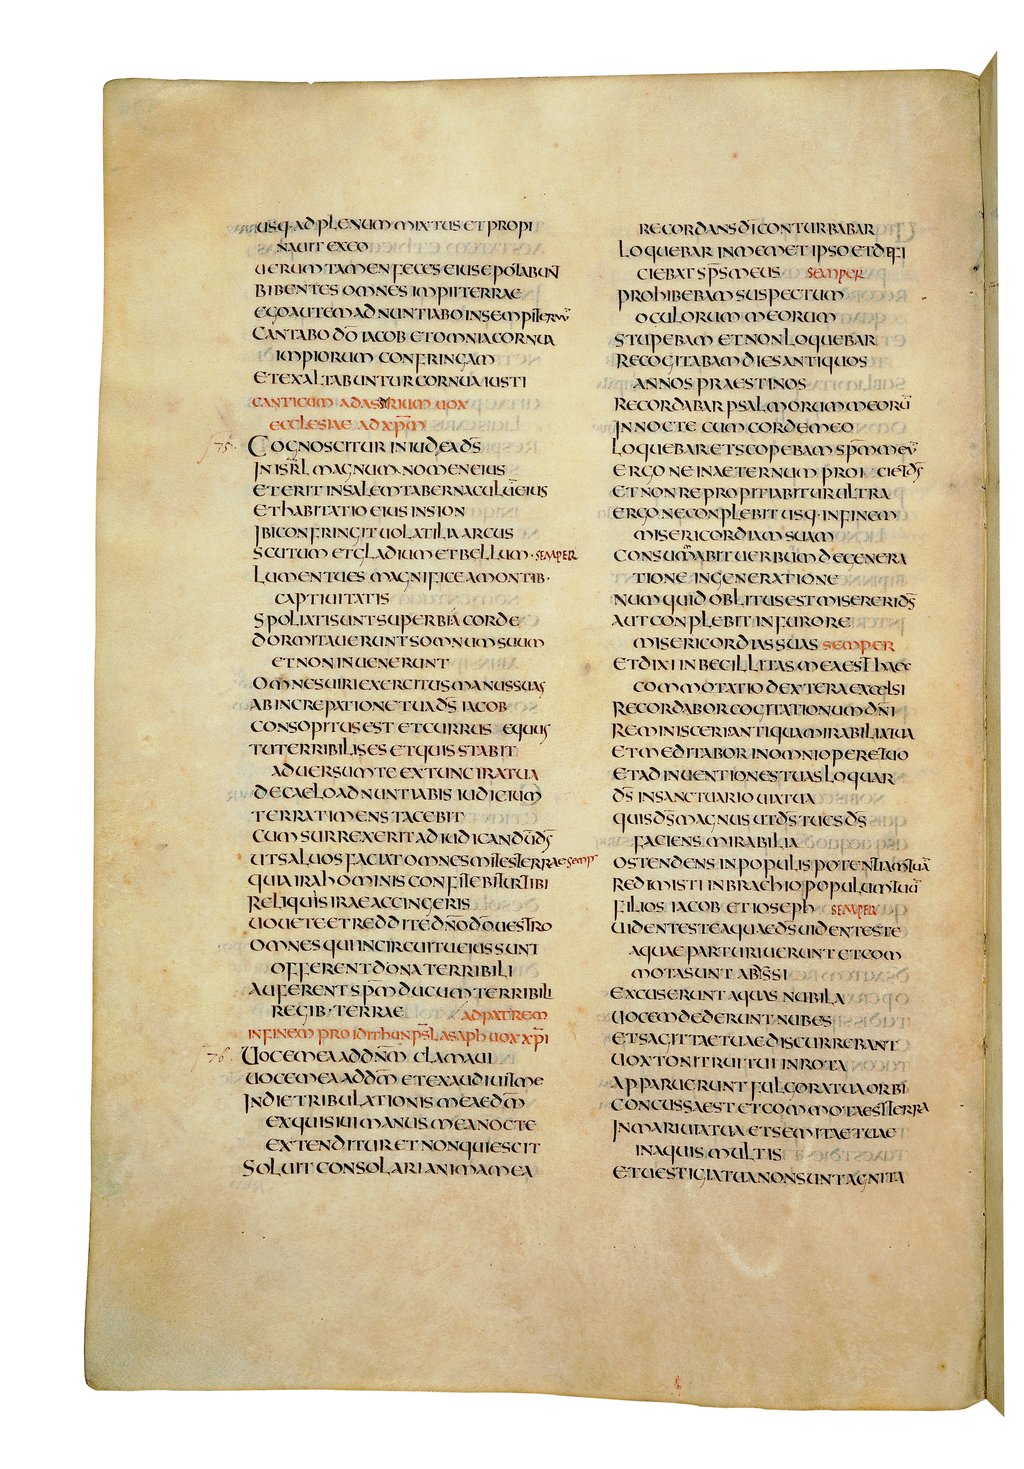 usq· ad plenum mixtus et propi
nauit ex eo
uerum tamen feces eius epotabunt
bibentes omnes impii terrae
ego autem adnuntiabo in sempiternū
Cantabo dō iacob et omnia cornua
impiorum confringam
et exaltabuntur cornua iusti
canticum ad assyrium uox
ecclesiae ad xp̄m
75
Cognoscitur in iudea d̄s
In isrl̄ magnum nomen eius
et erit in salem tabernaculū eius
et habitatio eius in sion
Ibi confringit uolatilia arcus
Scutum et gladium et bellum· semper
Lumen tu es magnifice a montib·
captiuitatis
Spoliati sunt superbi corde
dormitauerunt somnum suum
et non inuenerunt
omnes uiri exercitus manus suas
ab increpatione tua d̄s iacob
consopitus est et currus equus
tu terribilis es et quis stabit
aduersum te ex tunc ira tua
de caelo adnuntiabis iudicium
terra timens tacebit
cum surrexerit ad iudicandū d̄s
ut saluos faciat omnes mites terrae semp
quia ira hominis confitebitur tibi
reliquis irae accingeris
uouete et reddite dn̄o dō uestro
omnes qui in circuitu eius sunt
offerent dona terribili
auferent sp̄m ducum terribili
regib· terrae ad patrem
in finem pro idithun ps̄l asaph uox xp̄i
76
Uoce mea ad dn̄m clamaui
uoce mea ad dm̄ et exaudiuit me
In die tribulationis meae dm̄
exquisiui manus mea nocte
extenditur et non quiescit
Soluit consolari anima mea
recordans dī conturbabar
Loquebar in memet ipso et defi
ciebat sps̄ meus semper
prohibebam suspectum
oculorum meorum
Stupebam et non loquebar
recogitabam dies antiquos
annos praestinos
recordabar psalmorum meorū
In nocte cum corde meo
Loquebar et scopebam sp̄m meū
ergone in aeternum proiciet d̄s
et non repropitiabitur ultra
ergone conplebit usq· in finem
misericordiam suam
consummabit uerbum de genera
tione in generatione
numquid oblitus est misereri d̄s
aut conplebit in furore
misericordias suas semper
et dixi inbecillitas mea est haec
commotatio dextera excelsi
recordabor cogitationum dn̄i
reminiscens antiqua mirabilia tua
et meditabor in omni opere tuo
et adinuentiones tuas loquar
d̄s in sanctuario uia tua
quis d̄s magnus ut d̄s tu es d̄s
faciens mirabilia
ostendens in populis potentiam tuā
redimisti in brachio populum tuū
filios iacob et ioseph semper
uidentes te aquae d̄s uidentes te
aquae parturiuerunt et com
motae sunt abissi
excuserunt aquas nubila
uocem dederunt nubes
et sagittae tuae discurrebant
uox tonitrui tui in rota
apparuerunt fulgora tua orbi
concussa est et commota est terra
In mari uia tua et semitae tuae
in aquis multis
et uestigia tua non sunt agnita